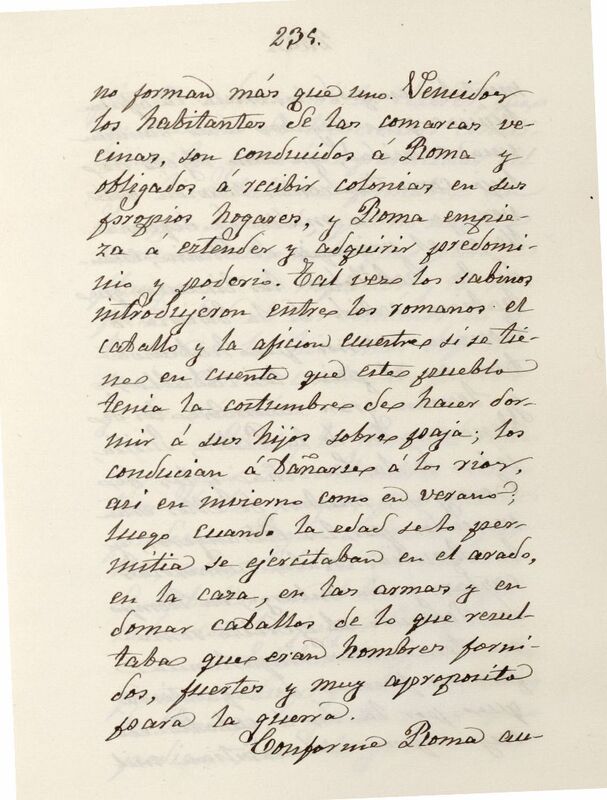 235.
no forman más que uno. Vencidos
los habitantes de las comarcas ve-
cinas, son conducidos á Roma y
obligados á recibir colonias en sus
propios hogares, y Roma empie-
za á estender y adquirir predomi-
nio y poderio. Tal vez los sabinos
introdujeron entre los romanos el
caballo y la aficion ecuestre si se tie-
ne en cuenta que este pueblo
tenia la costumbre de hacer dor-
mir á sus hijos sobre paja; los
conducian á bañarse á los rios,
asi en invierno como en verano;
luego cuando la edad se lo per-
mitia se ejercitaban en el arado,
en la caza, en las armas y en
domar caballos de lo que resul-
taba que eran hombres forni-
dos, fuertes y muy aproposito
para la guerra.
Conforme Roma au-